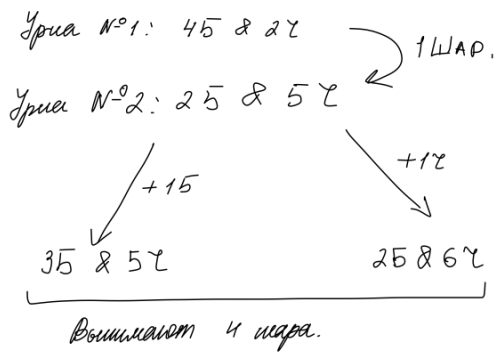 Урна №1: 4Б & 2Ч
1 ШАР.
Урна №2: 2Б & 5Ч
+1Б
+1Ч
3Б & 5Ч
2Б & 6Ч
Вынимают 4 шара.